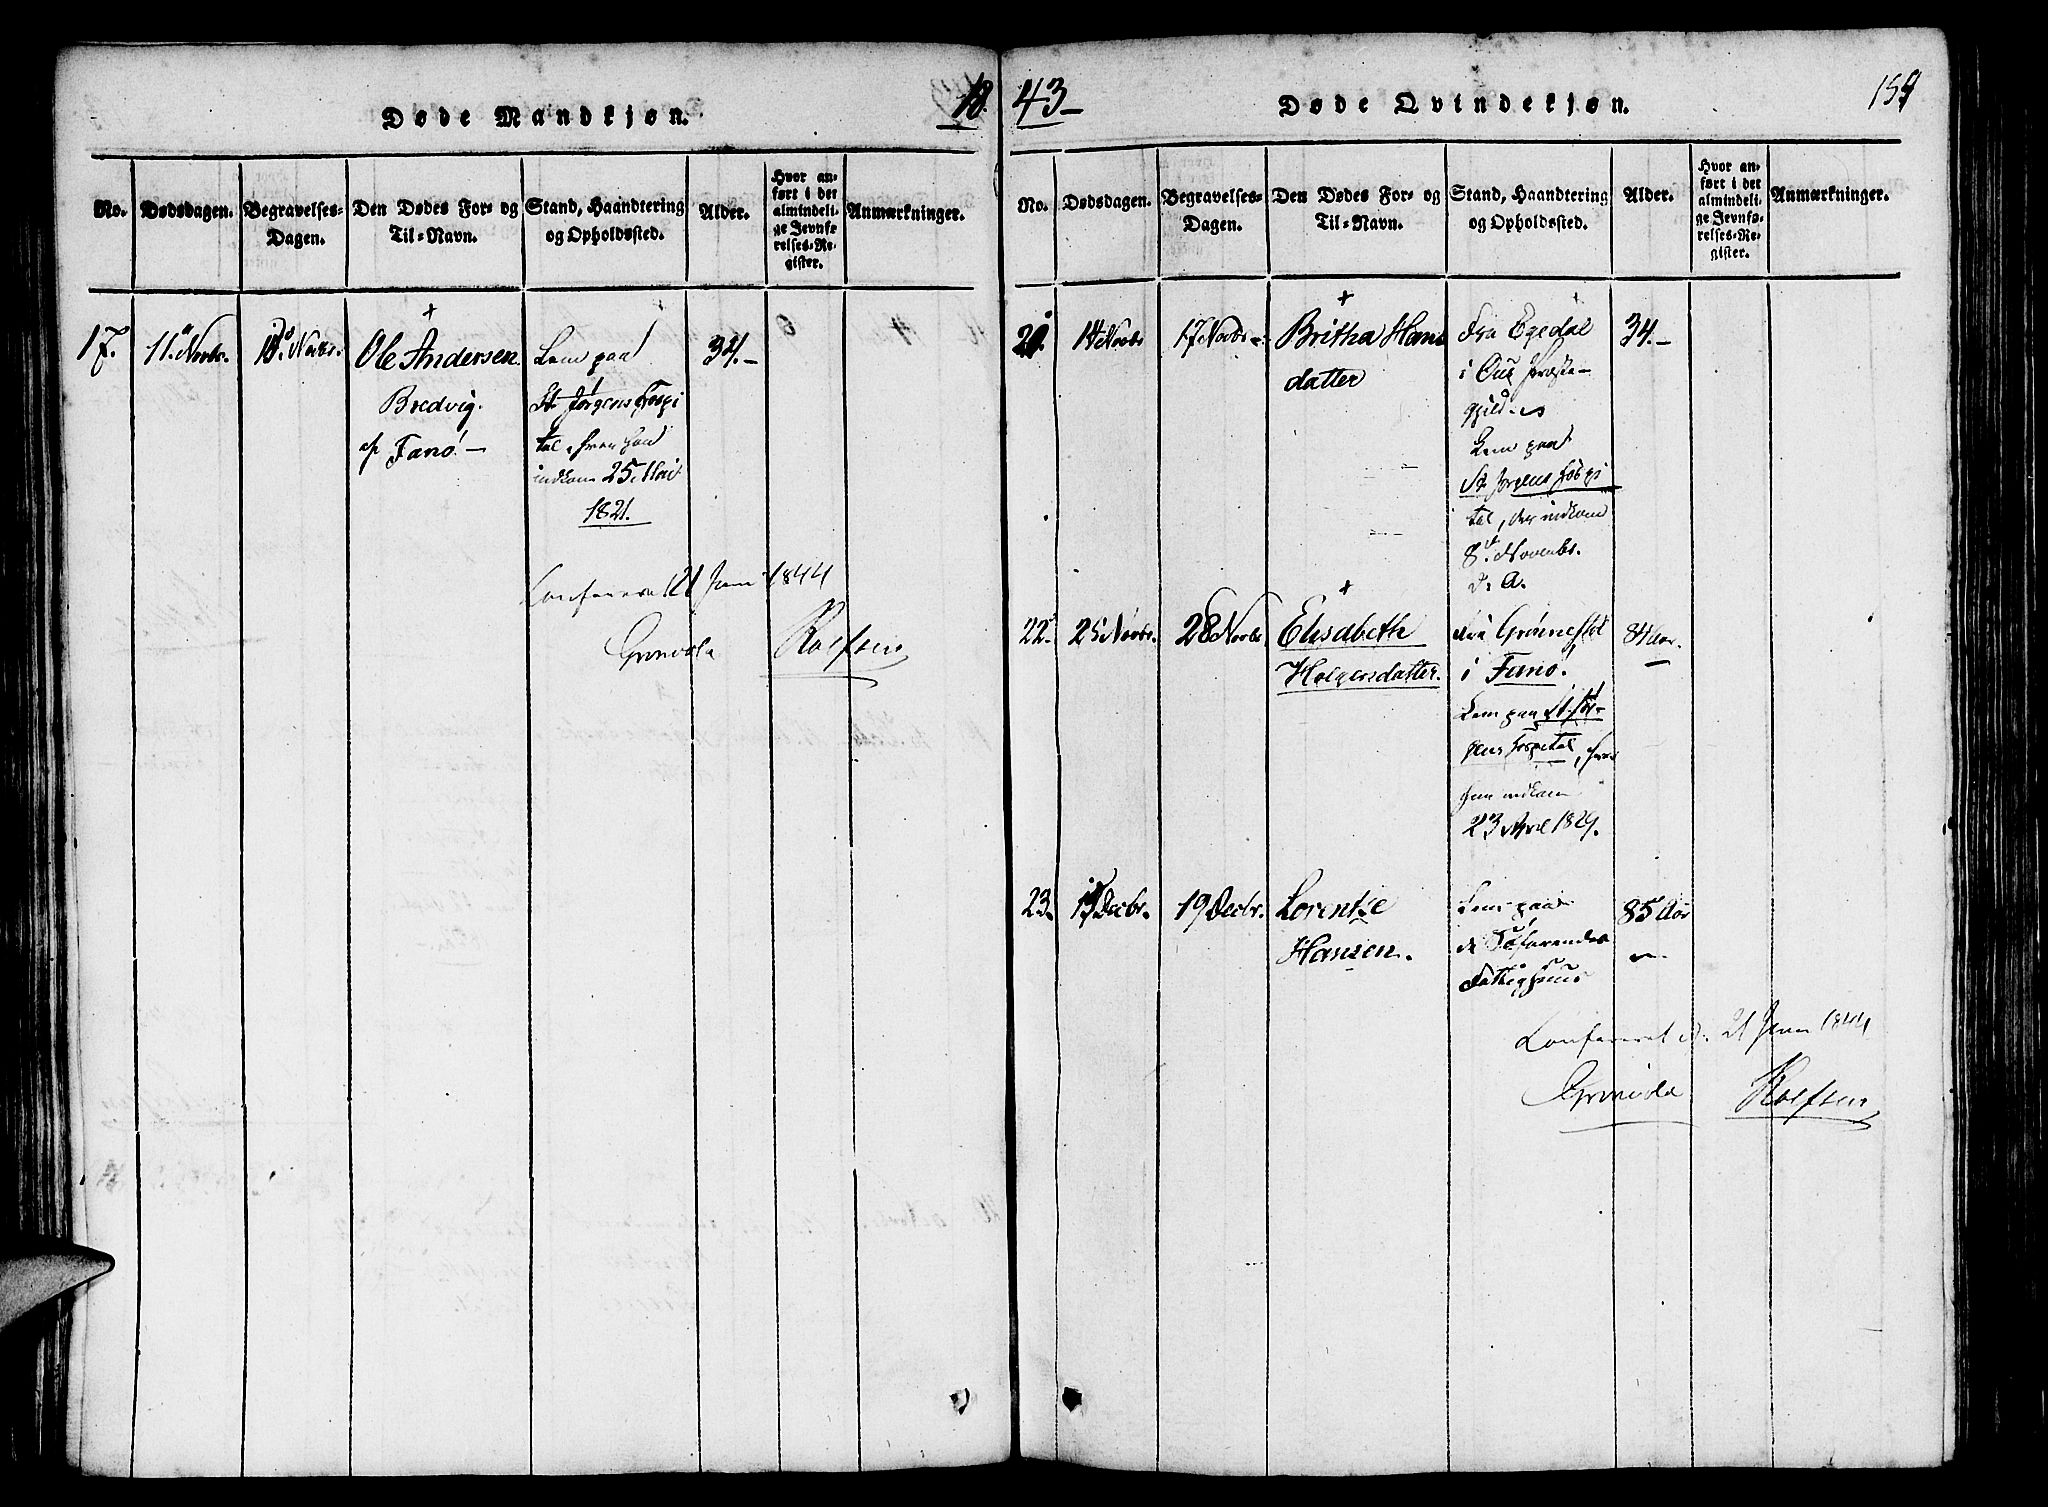 18
Døde Mandkjøn.
No.
Dødsdagen.
Begravelses-
Dagen.
Den Dødes For- og
Til-Navn.
Stand, Haandtering
og Opholdssted.
Alder.
Hvor an-
ført i det
almindeli-
ge Jevnfø-
relses-Re-
gister.
Anmærkninger.
17.
11 Novbr.
Novbr.
Ole Andersen
Bredvig.
af Fanø! -
Lem paa
St Jørgens Hospi
tal, hvor han
indkom 25. Mai
1821.
34. -
Confereret 21 Janu 1844
Grønvold
Rolfsen
43 -
159
Døde Qvindekjøn.
No.
Dødsdagen.
Begravelses-
Dagen.
Den Dødes For- og
Til-Navn.
Stand, Haandtering
og Opholdssted.
Alder.
Hvor an-
ført i det
almindeli-
ge Jevnfø-
relses-Re-
gister.
Anmærkninger.
21.
14 Novbr
17 Novbr.
Britha Hans
datter
Fra Egedal
i Præste-
gjeld.
Lem paa
St Jørgens Hospi
tal, der indkom
8d. Novenbr.
d. A.
34. -
22.
25 Novbr.
28 Novbr
Elisabeth
Holgersdatter.
fra Grønnestøl
i Fanø!
Lem paa St. Jør-
gens Hospital, hvor
hun indkom
23 April 1829.
84 Aar.
23.
Decbr.
19 Decbr.
Lorentze
Hansen.
Lem paa
de Søfarendes
Fattighuus
85 Aar
Confereret d. 21 Janu 1844
Grønvold
Rolfsen